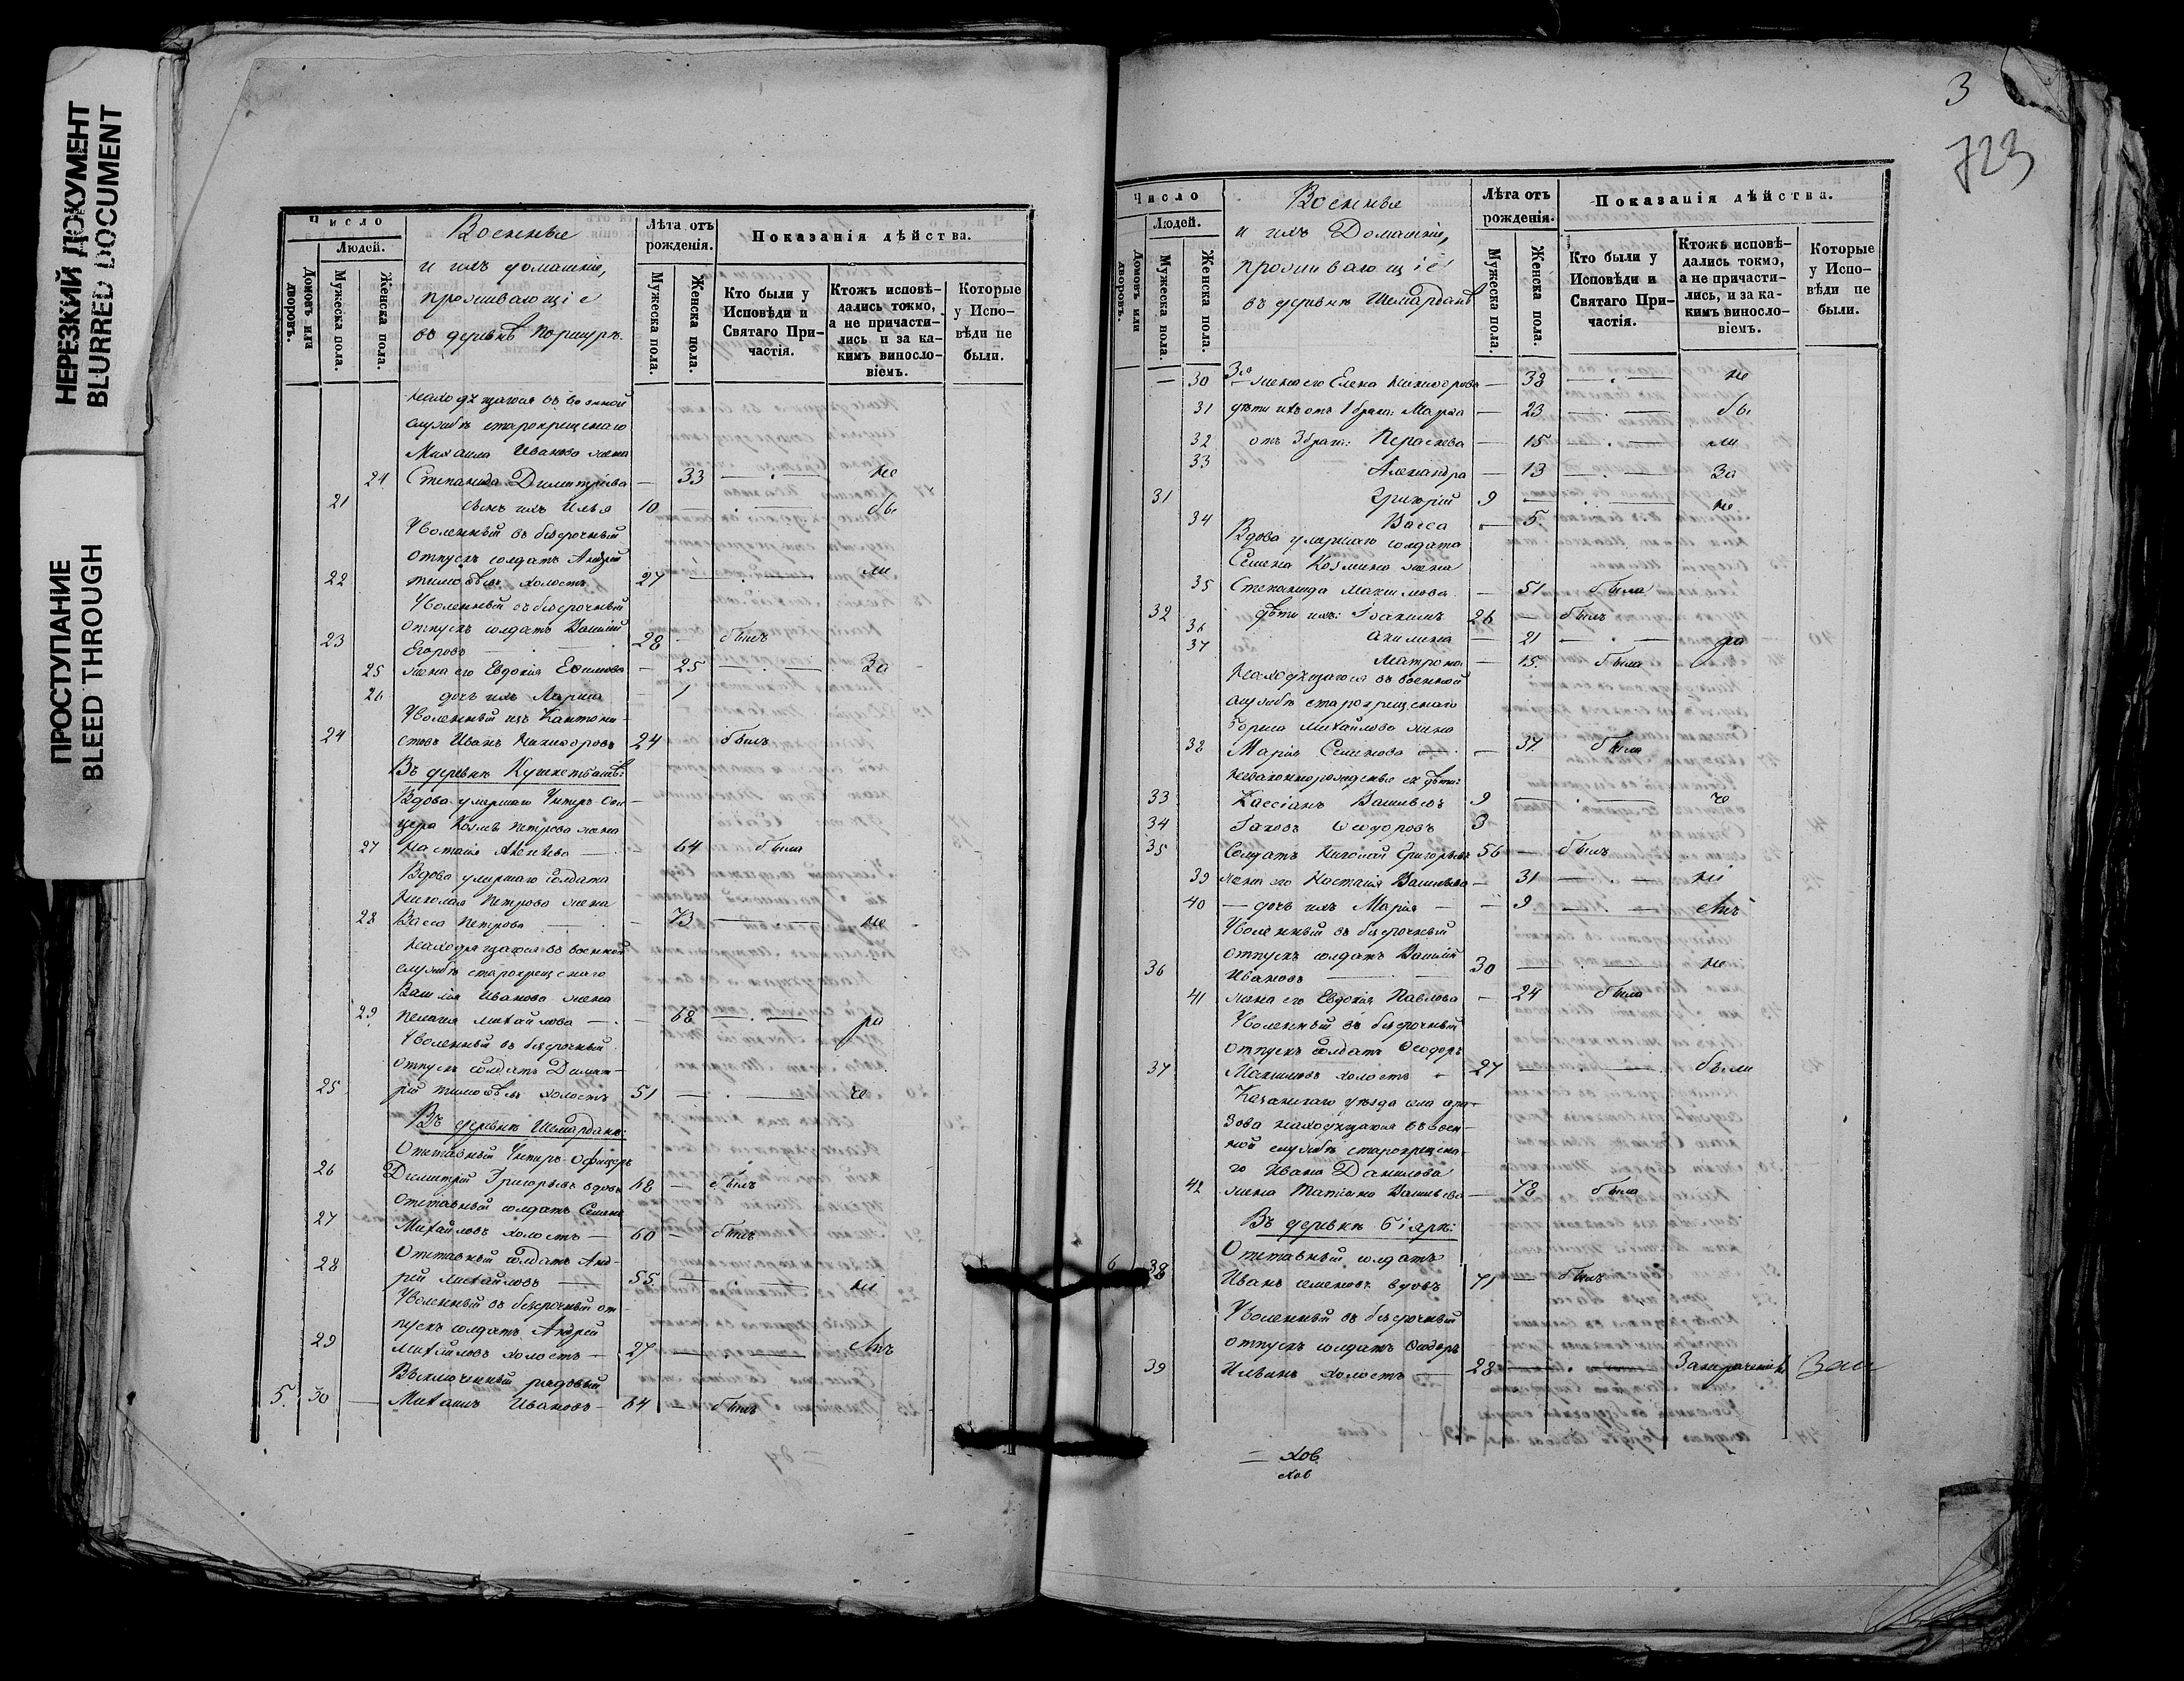 НЕРЕЗКИЙ ДОКУМЕНТ
BLURRED DOCUMENT
ПРОСТУПАНИЕ
BLEED THROUGH
Число
Людей.
Домовъ или дворовъ.
Мужеска пола.
Женска пола.
Военные
и ихъ домашніе,
проживающіе
въ деревнѣ Поршурѣ.
Лѣта отъ рожденія.
Мужеска пола.
Женска пола.
Показанія дѣйства.
Кто были у Исповѣди и Святаго Причастія.
Ктожъ исповѣдались токмо, а не причастились и за какимъ винословіемъ.
Которые у Исповѣди не были.
находящагося въ военной
службѣ старокрещенаго
Михаила Иванова жена
24 Степанида Димитріева — 33 — . — не
21 сынъ ихъ Илья 10 — . — бы
Уволенный въ безсрочный
отпускъ солдатъ Андрей
22 холостъ 27 — . — ли
Уволенный въ безсрочный
отпускъ солдатъ Василій
23 Егоровъ 28 — былъ
25 жена его Евдокія — 25 — . — За
26 дочь ихъ — 1
Уволенный изъ Кантони-
24 стовъ Иванъ Никифоровъ 24 былъ
Въ деревнѣ
Вдова умершаго Унтеръ-Офи-
цера Петрова жена
27 Настасія — 64 была
Вдова умершаго солдата
Николая Петрова жена
28 Васса Петрова — 73 — . — не
Находящагося въ военной
службѣ старокрещенаго
Василія Иванова жена
29 Пелагія Михайлова — 68 — . — ра
Уволенный въ безсрочный
отпускъ солдатъ Димит-
25 рій холостъ 51 — . — че
Въ деревнѣ Шемарданѣ:
Отставный Унтеръ-Офицеръ
26 Димитрій Григорьевъ вдовъ 68 — былъ
Отставный солдатъ Семенъ
27 Михайловъ холостъ — 60 — былъ
Отставный солдатъ Анд-
28 рей Михайловъ — 55 — . — ні
Уволенный въ безсрочный от-
пускъ солдатъ Андрей
29 Михайловъ холостъ — 27 — . — емъ
рядовый
5. 30 — Михаилъ Ивановъ — 64 — былъ
3
723
Число
Людей.
Домовъ или дворовъ.
Мужеска пола.
Женска пола.
Военные
и ихъ Домашніе,
проживающіе
въ деревнѣ Шемарданѣ
Лѣта отъ рожденія.
Мужеска пола.
Женска пола.
Показанія дѣйства.
Кто были у Исповѣди и Святаго Причастія.
Ктожъ исповѣдались токмо, а не причастились, и за какимъ винословіемъ.
Которые у Исповѣди не были.
— 30 жена его Елена Никифорова — 38 — . — не
31 дѣти ихъ отъ 1 брака: Марѳа — 23 — . — бы
32 отъ 3 брака: Параскева — 15 — . — ли
33 Александра — 13 — . — За
31 Григорій 9 — . — не
34 Васса — 5
Вдова умершаго солдата
Семена Козмина жена
35 Степанида Максимова — 51 была
32 дѣти ихъ: Іоакимъ 26 — былъ
36 Акилина — 21 — . — ра
37 Матрона — 15 была
Находящагося въ военной
службѣ старокрещенаго
Бориса Михайлова жена
38 Марія Семенова — 37 была
Незаконнорожденные ея дѣти:
33 Кассіанъ Васильевъ 9 — . — че
34 Іаковъ Ѳеодоровъ 3
35 Солдатъ Николай Григорьевъ 56 — былъ
39 жена его Настасія Васильева — 31 — . — ні
40 — дочь ихъ Марія — 9 — . — емъ
Уволенный въ безсрочный
отпускъ солдатъ Василій
36 Ивановъ 30 — . — не
41 жена его Евдокія Павлова — 24 была
Уволенный въ безсрочный
отпускъ солдатъ Ѳеодоръ
37 Максимовъ холостъ 27 — . — были
Казанскаго уѣзда села
находящагося въ воен-
ной службѣ старокрещена-
го Ивана Данилова
42 жена Татіана Васильева — 48 была
Въ деревнѣ
Отставный солдатъ
6 38 Иванъ Семеновъ вдовъ 71 — былъ
Уволенный въ безсрочный
отпускъ солдатъ Ѳеодоръ
39 холостъ 28 — . —
хов
хов